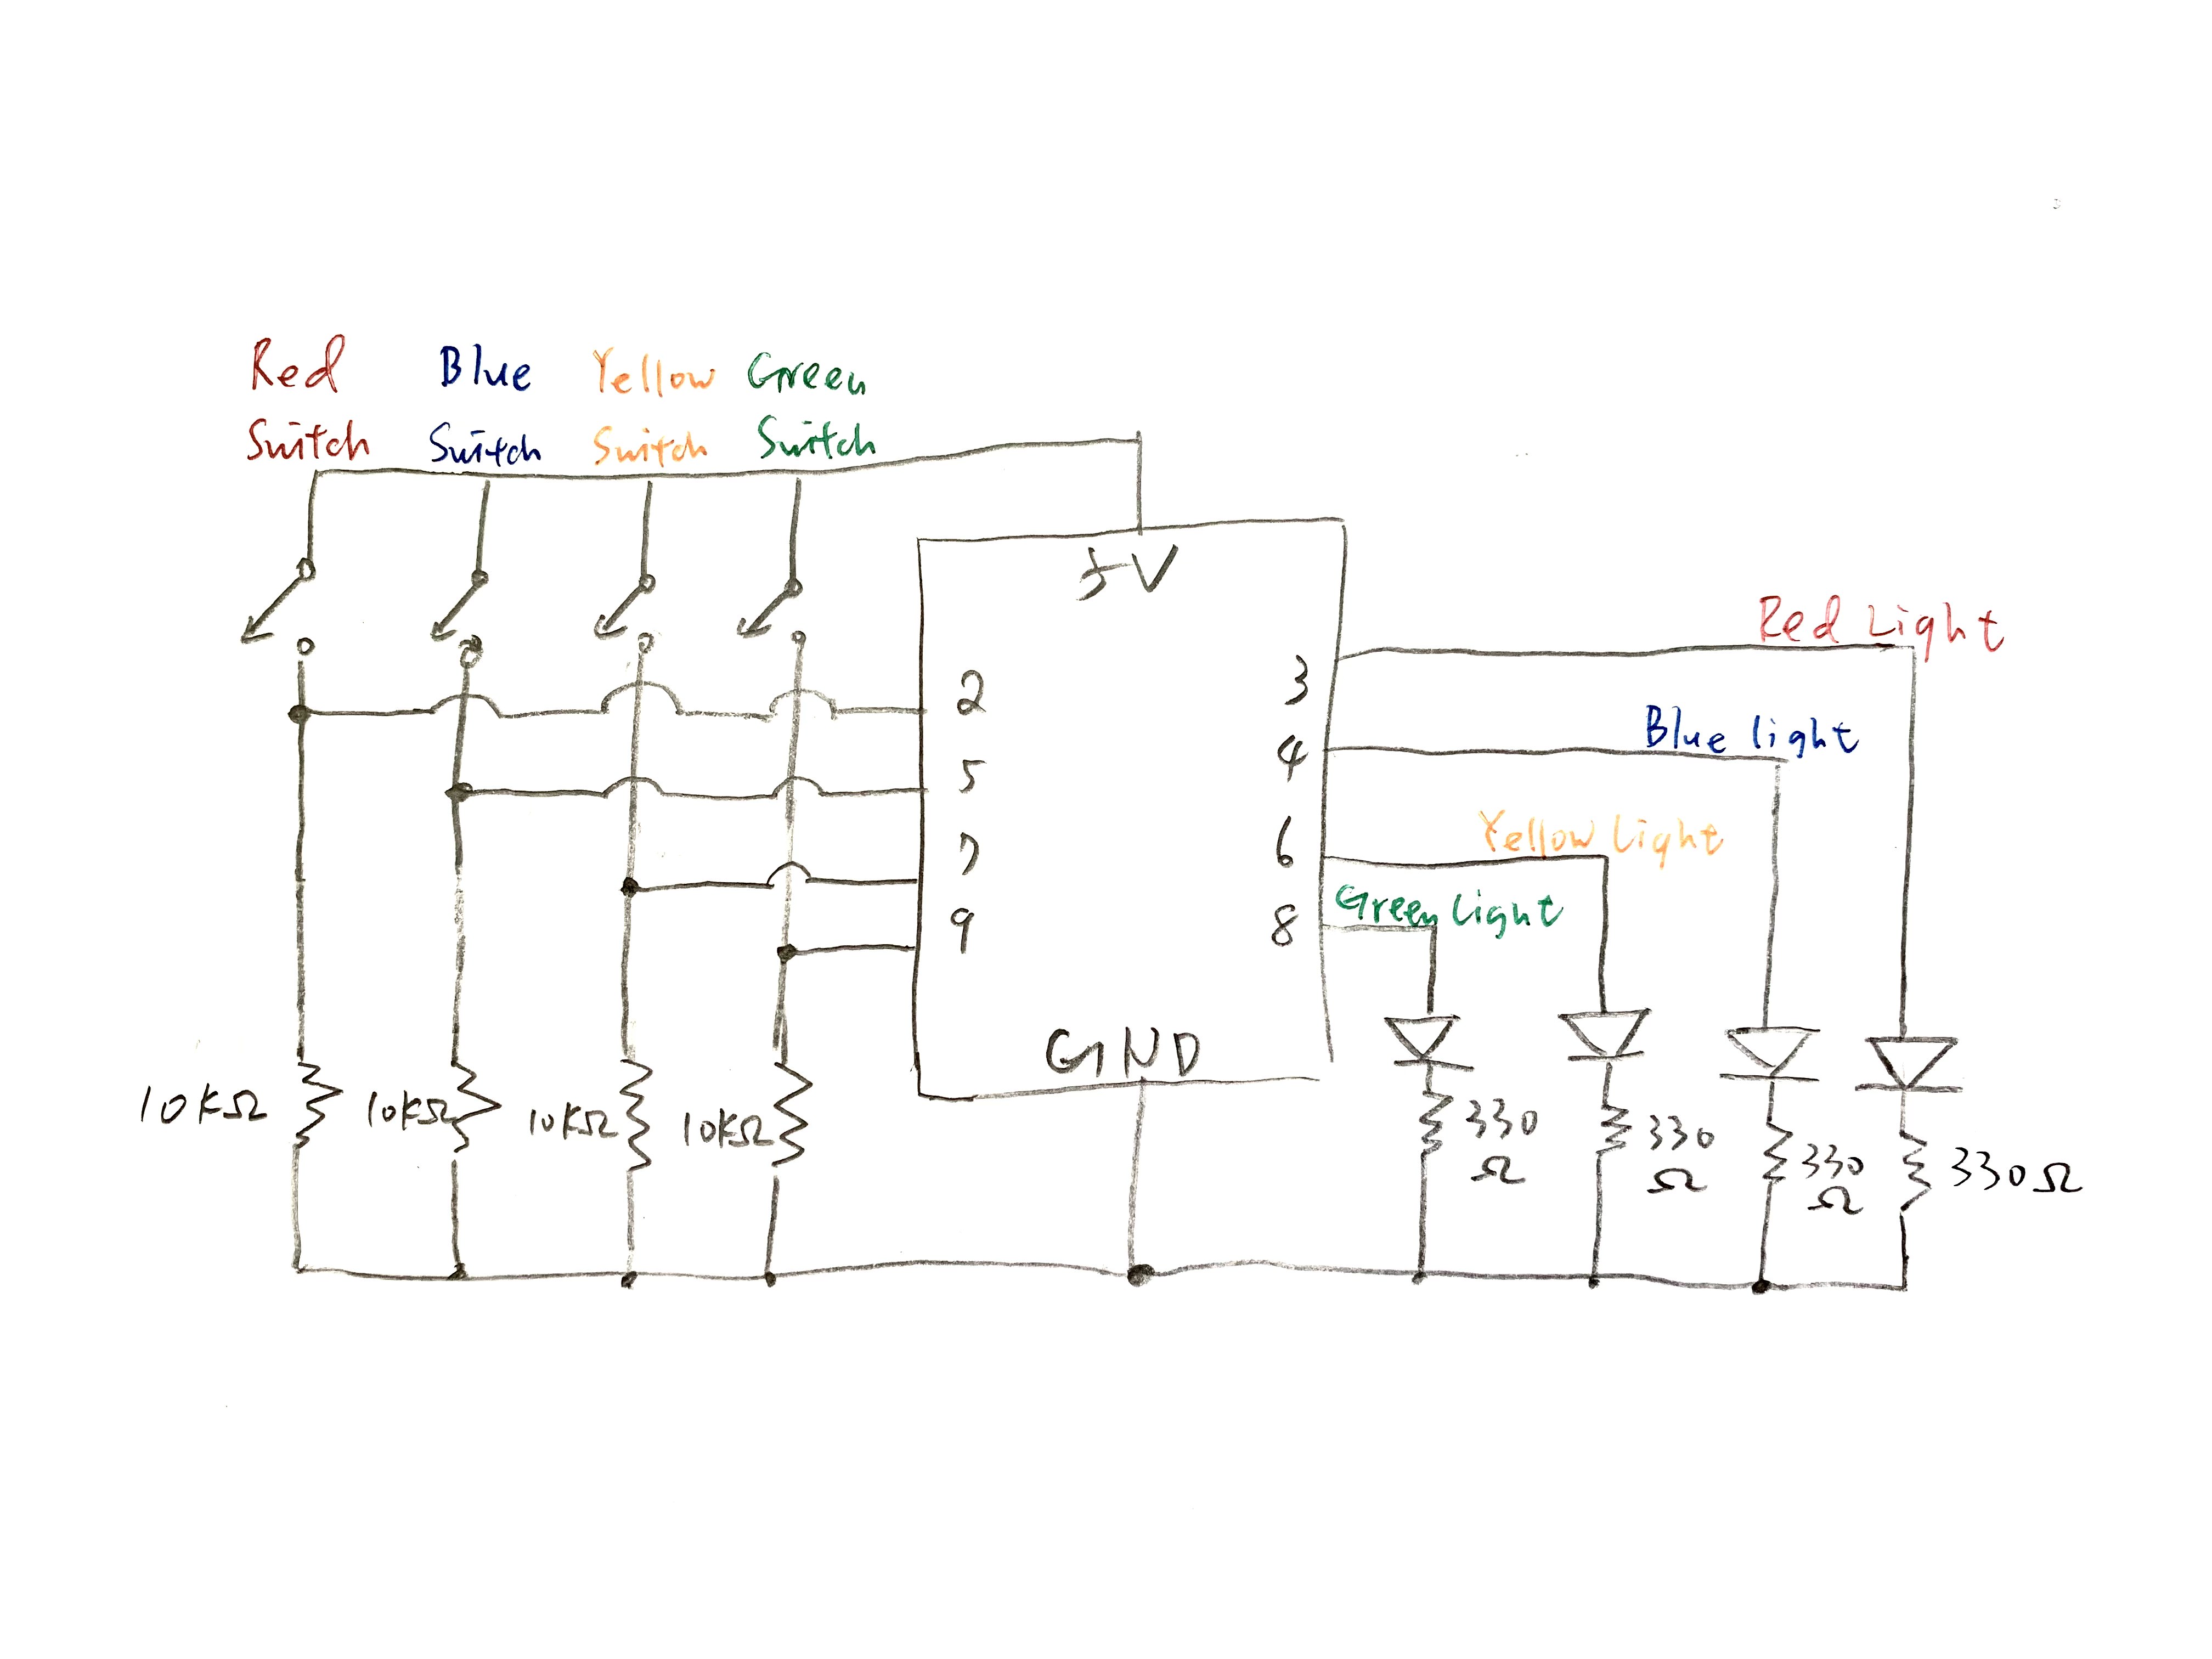 Red
Switch
Blue
Switch
Yellow
Switch
Green
Switch
5V
2
5
7
9
3
4
6
8
GND
Red Light
Blue light
Yellow Light
Green Light
10KΩ
10KΩ
10KΩ
10KΩ
330
Ω
330
Ω
330
Ω
330Ω